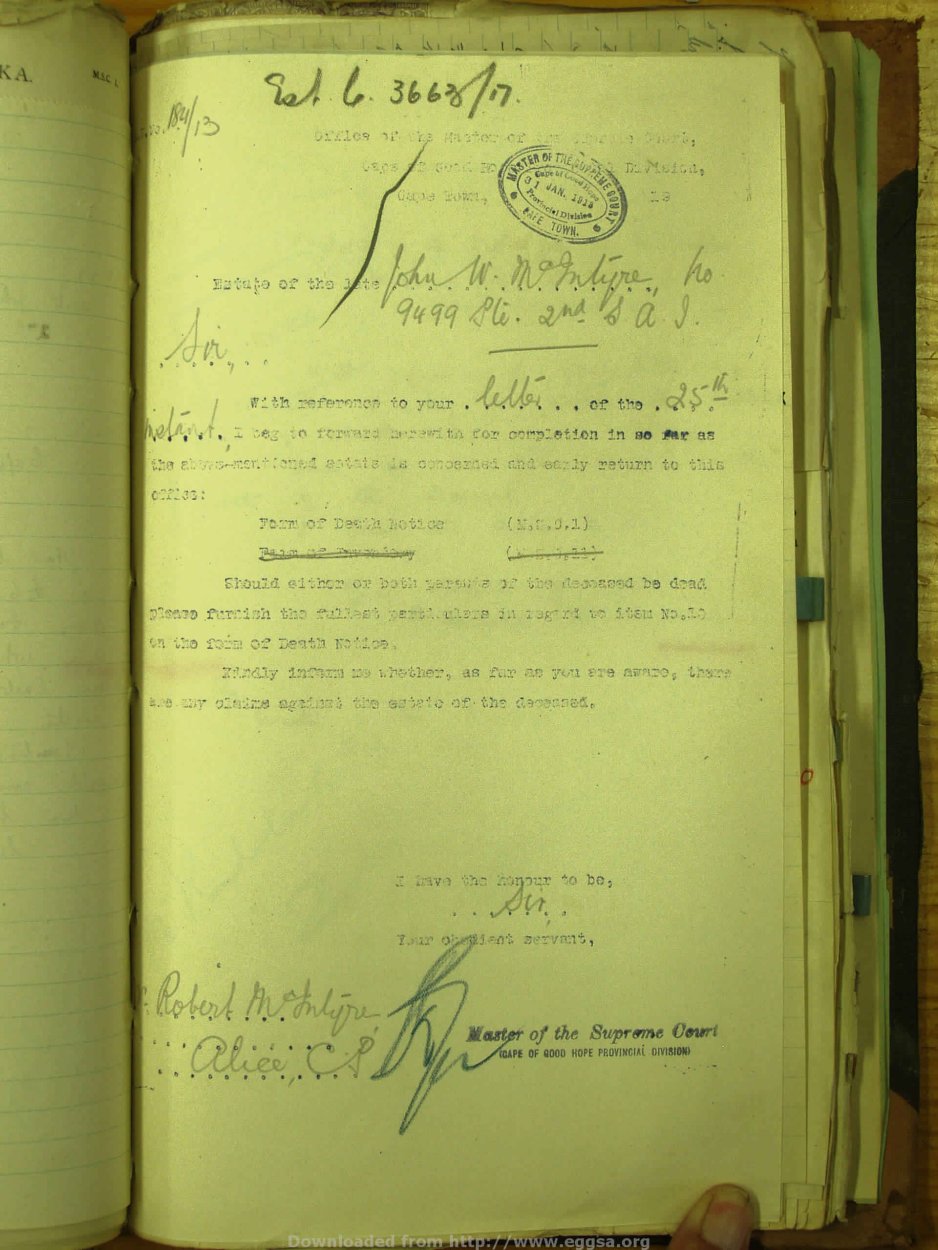 KA.
M.S.C 1.
Est. 6. 3663/17.
No. 184/13
Office of the Master of the Supreme Court,
Cape of Good Hope Division,
Cape Town, 19
MASTER OF THE SUPREME COURT
Cape of Good Hope
31 JAN. 1918
Provincial Division
CAPE TOWN.
Estate of the late John W. McIntyre, No
9499 Pte. 2nd S. A. I.
Sir,
With reference to your letter of the 25th
instant, I beg to forward herewith for completion in so far as
the above-mentioned estate is concerned and early return to this
office:
Form of Death Notice (M.S.C.1)
Form of Inventory
Should either or both parents of the deceased be dead
please furnish the fullest particulars in regard to item No.10
on the form of Death Notice.
Kindly inform me whether, as far as you are aware, there
are any claims against the estate of the deceased.
I have the honour to be,
Sir,
Your obedient servant,
Robert McIntyre,
Alice, C.P.
Master of the Supreme Court
(CAPE OF GOOD HOPE PROVINCIAL DIVISION)
Downloaded from http://www.eggsa.org